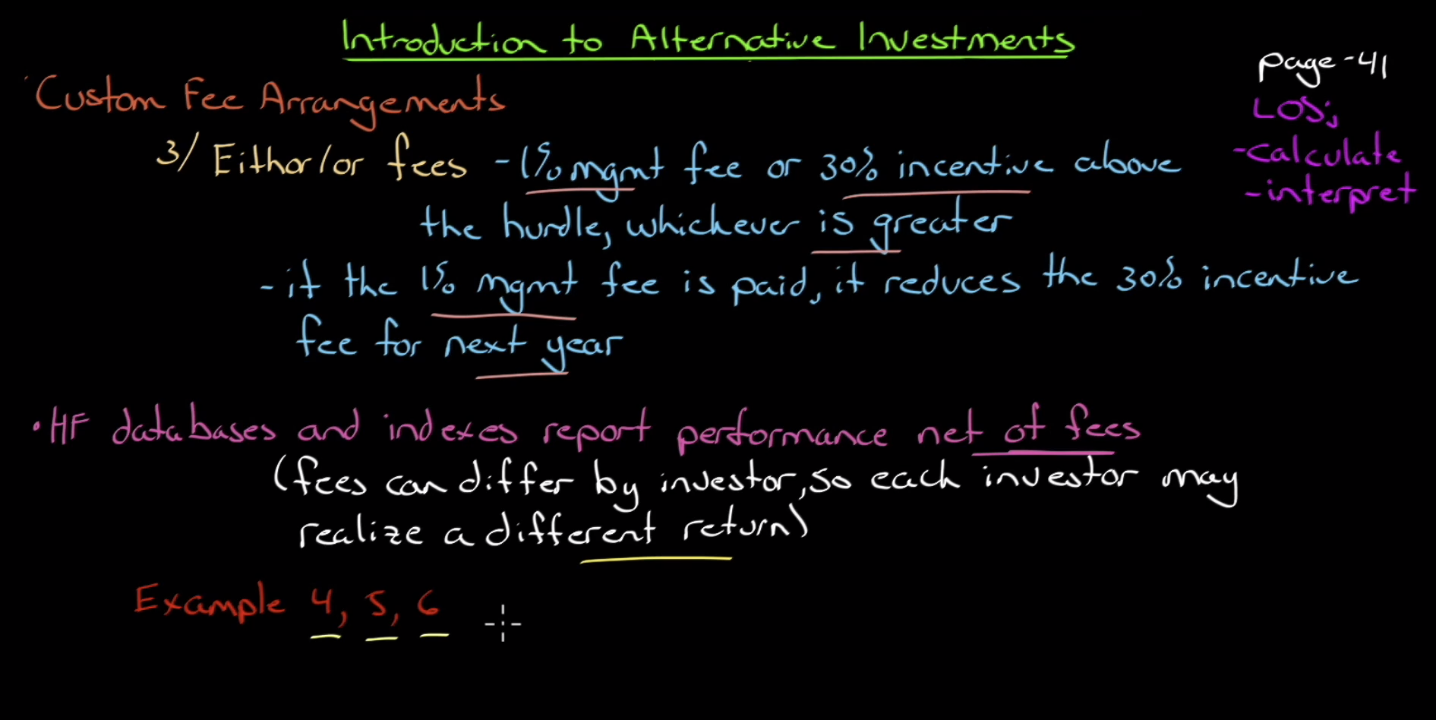 Introduction to Alternative Investments
page-41
LOS;
-calculate
-interpret
Custom Fee Arrangements
3/ Eithor/or fees -1% mgmt fee or 30% incentive above
the hurdle, whichever is greater
-if the 1% mgmt fee is paid, it reduces the 30% incentive
fee for next year
•HF databases and indexes report performance net of fees
(fees can differ by investor, so each investor may
realize a different return)
Example 4, 5, 6